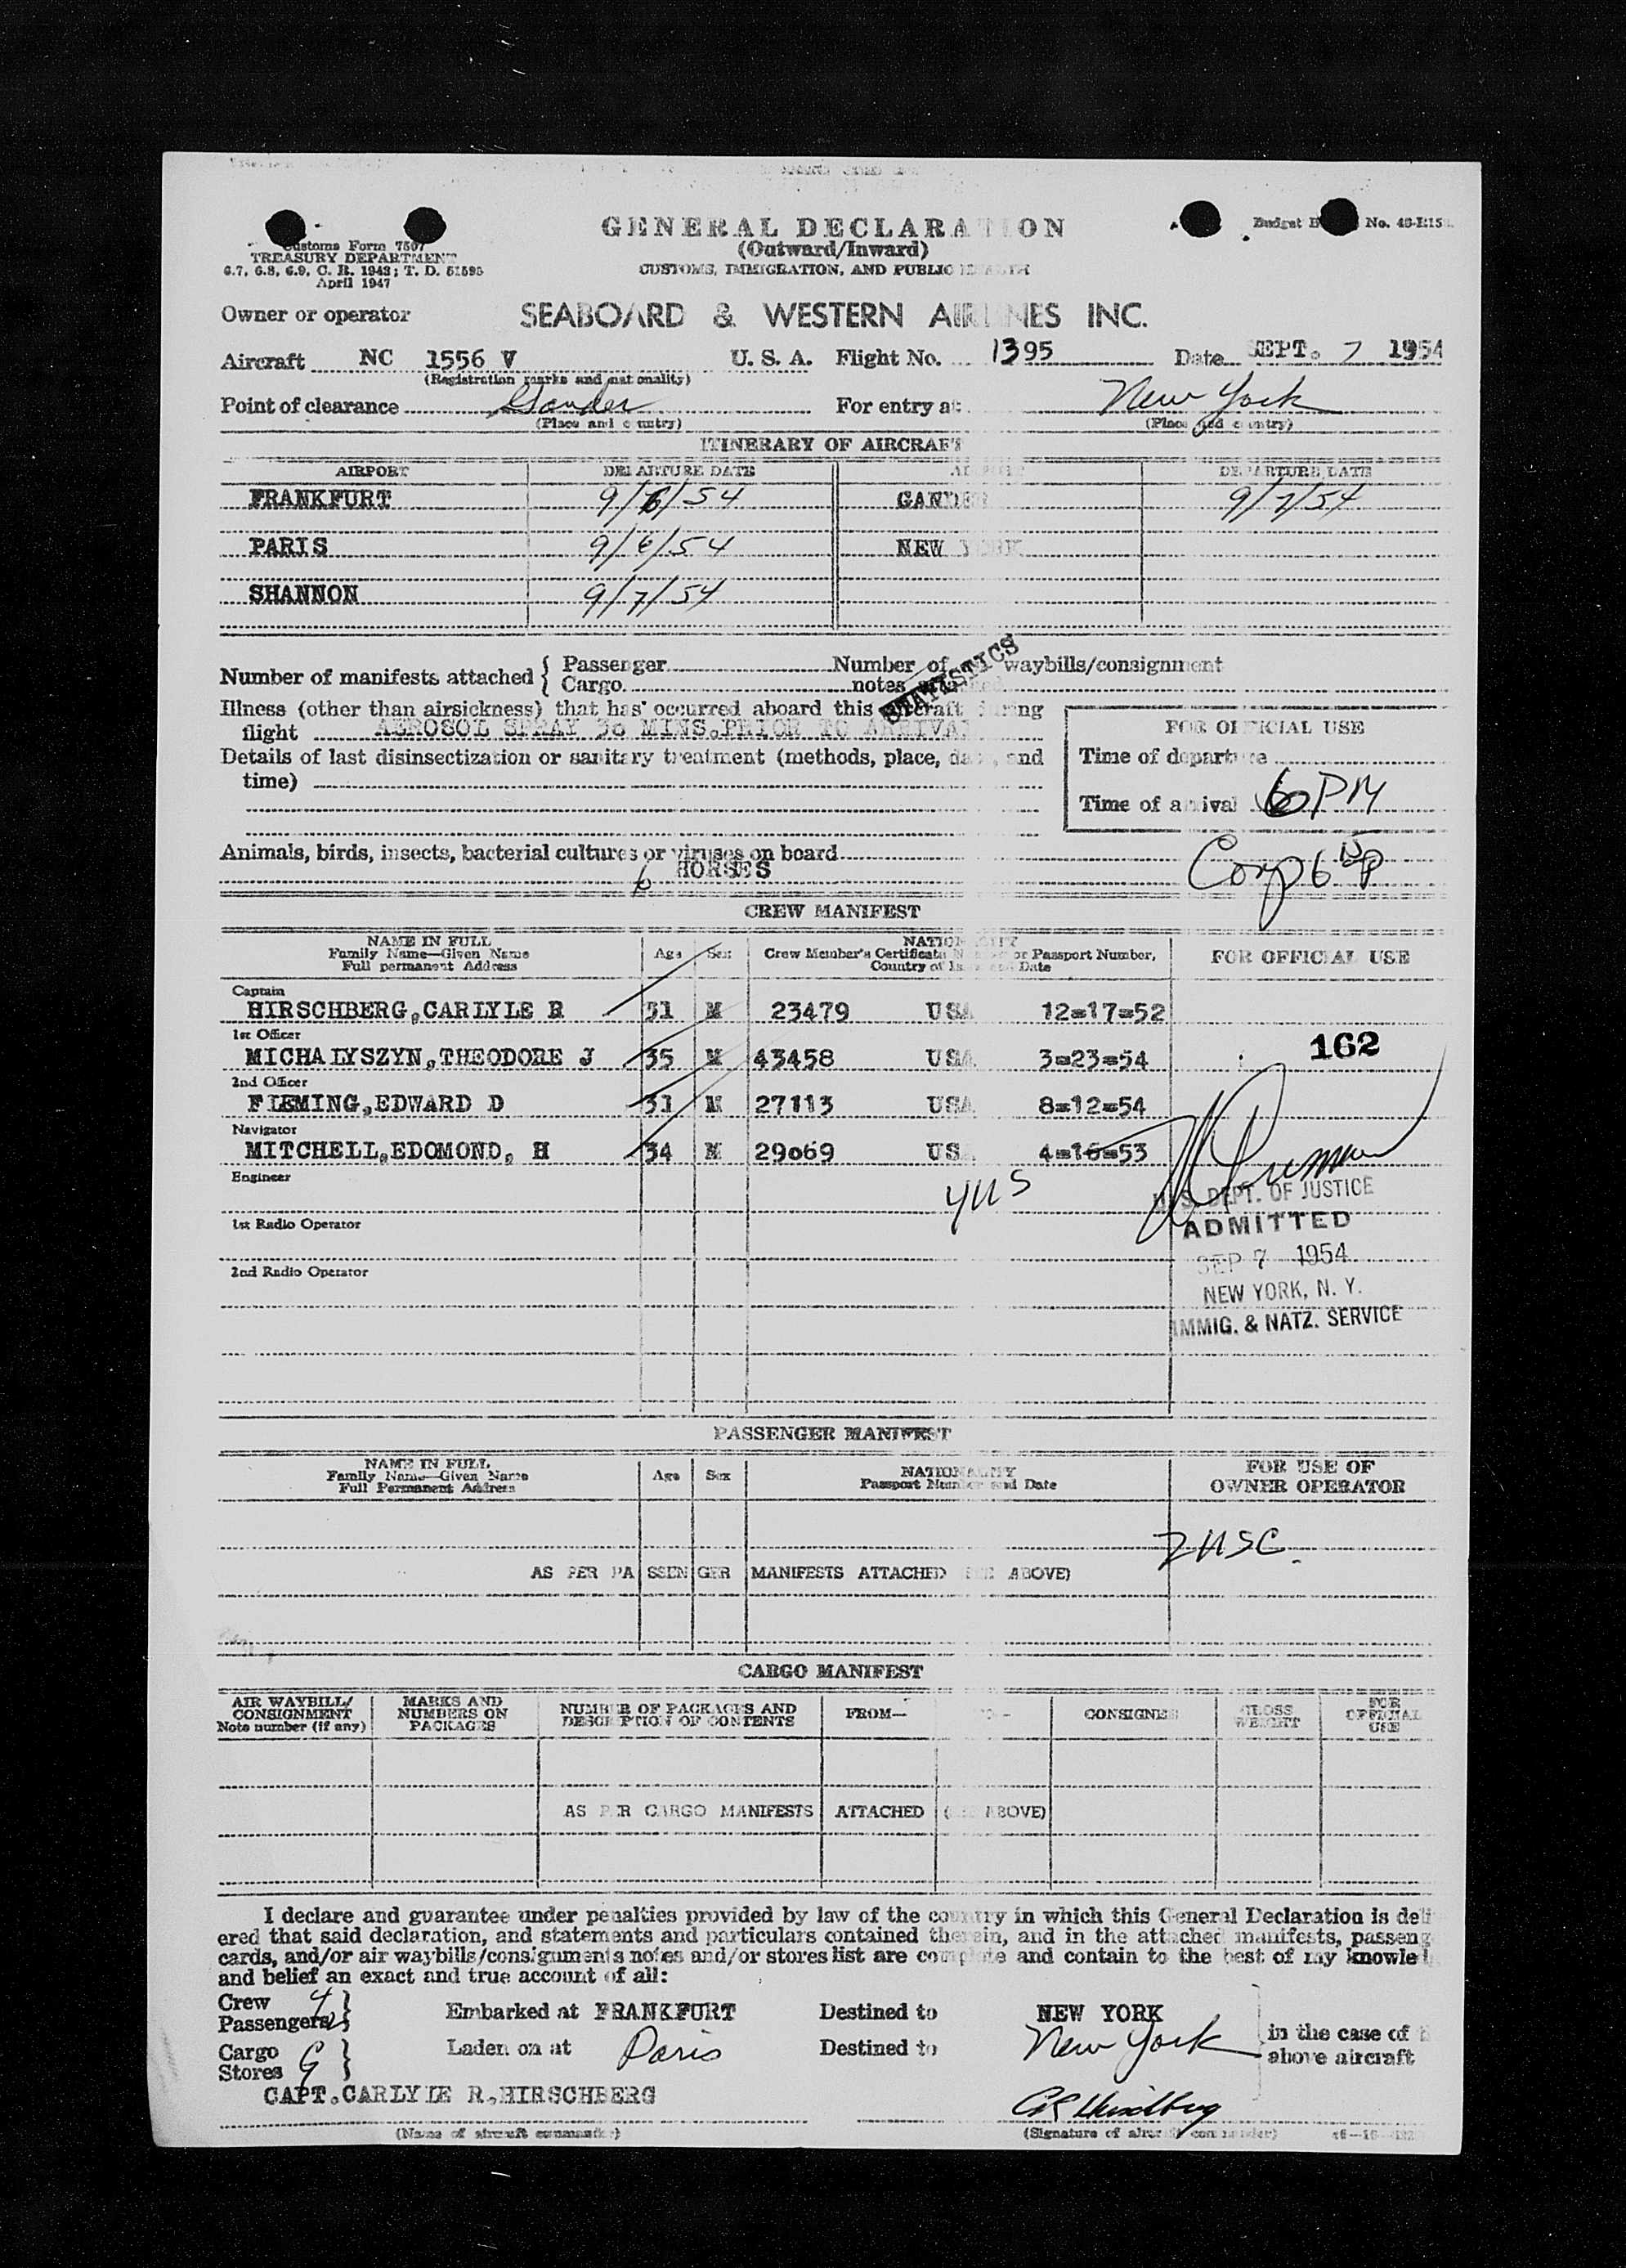 GENERAL DECLARATION
(Outward/Inward)
CUSTOMS, IMMIGRATION, AND PUBLIC HEALTH
Customs Form 7507
TREASURY DEPARTMENT
6.7, 6.8, 6.9, C. R. 1943; T. D. 51595
April 1947
Budget B No. 48-R15
Owner or operator SEABOARD & WESTERN AIRLINES INC.
Aircraft NC 1556 V U. S. A. Flight No. 1395 Date SEPT. 7 1954
(Registration marks and nationality)
Point of clearance Gander For entry at New York
(Place and country) (Place and country)
ITINERARY OF AIRCRAFT
AIRPORT DEPARTURE DATE AIRPORT DEPARTURE DATE
FRANKFURT 9/6/54 GANDER 9/7/54
PARIS 9/6/54 NEW YORK
SHANNON 9/7/54
STATISTICS
Number of manifests attached { Passenger Number of waybills/consignment
Cargo notes attached
Illness (other than airsickness) that has occurred aboard this aircraft during
flight AEROSOL SPRAY 30 MINS.PRIOR TO ARRIVAL
Details of last disinsectization or sanitary treatment (methods, place, date, and
time)
FOR OFFICIAL USE
Time of departure
Time of arrival 6 PM
Animals, birds, insects, bacterial cultures or viruses on board
6 HORSES
Comp 6 15 P
CREW MANIFEST
NAME IN FULL
Family Name—Given Name
Full permanent Address
Age Sex
NATIONALITY
Crew Member's Certificate Number or Passport Number,
Country of Issue and Date
FOR OFFICIAL USE
Captain
HIRSCHBERG,CARLYLE R 31 M 23479 USA 12-17-52
1st Officer
MICHALYSZYN,THEODORE J 35 M 43458 USA 3-23-54
162
2nd Officer
FLEMING,EDWARD D 31 M 27113 USA 8-12-54
Navigator
MITCHELL,EDOMOND, H 34 M 29069 US 4-16-53
Engineer
4US
1st Radio Operator
2nd Radio Operator
U. S. DEPT. OF JUSTICE
ADMITTED
SEP 7 1954
NEW YORK, N. Y.
IMMIG. & NATZ. SERVICE
PASSENGER MANIFEST
NAME IN FULL
Family Name—Given Name
Full Permanent Address
Age Sex
NATIONALITY
Passport Number and Date
FOR USE OF
OWNER OPERATOR
2USC
AS PER PASSENGER MANIFESTS ATTACHED (SEE ABOVE)
CARGO MANIFEST
AIR WAYBILL/
CONSIGNMENT
Note number (if any)
MARKS AND
NUMBERS ON
PACKAGES
NUMBER OF PACKAGES AND
DESCRIPTION OF CONTENTS
FROM— TO— CONSIGNEE
GROSS
WEIGHT
FOR
OFFICIAL
USE
AS PER CARGO MANIFESTS ATTACHED (SEE ABOVE)
I declare and guarantee under penalties provided by law of the country in which this General Declaration is deli
ered that said declaration, and statements and particulars contained therein, and in the attached manifests, passeng
cards, and/or air waybills/consignments notes and/or stores list are complete and contain to the best of my knowled
and belief an exact and true account of all:
Crew 4 } Embarked at FRANKFURT Destined to NEW YORK
Passengers 2 }
in the case of
above aircraft
Cargo } Laden on at Paris Destined to New York
Stores G }
CAPT.CARLYLE R.HIRSCHBERG CR Hirschberg
(Name of aircraft commander) (Signature of aircraft commander)